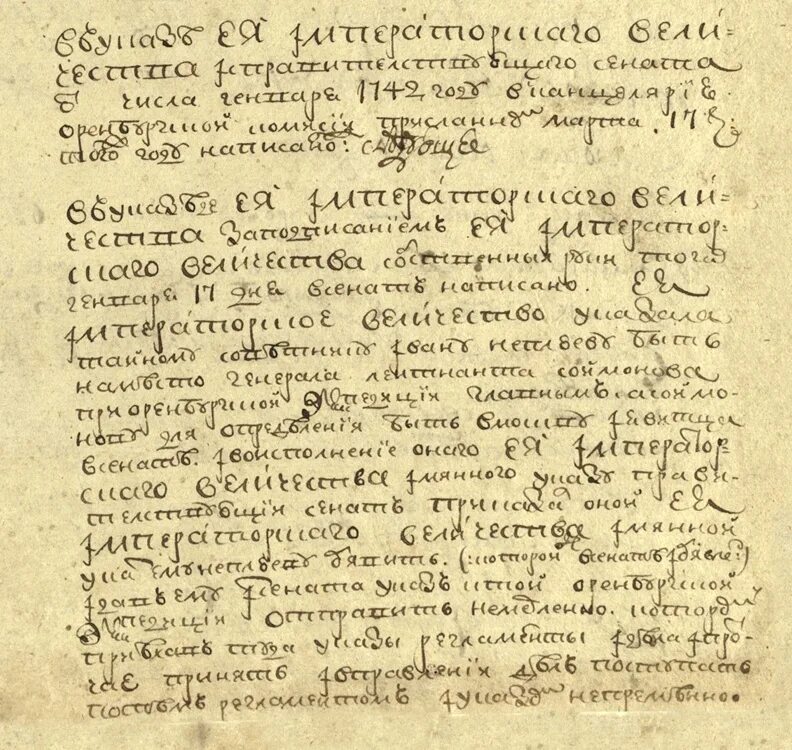 Въ указѣ ЕЯ Императорскаго Вели-
чества и правителствующаго сената
числа генваря 1742 году в канцелярїю
оренбургской комисїи присланному марта 17
того году написано: слѣдующее
Въ указѣ де ЕЯ Императорскаго Вели-
чества заподписанїемъ ЕЯ Император-
скаго Величества собственныя руки тогож
генваря 17 дня в сенатъ написано. ЕЯ
Императорское Величество указала
тайному совѣтнику Ивану неплюеву быть
на мѣсто генерала лейтнанта соймонова
при оренбургской экспедицїи главнымъ. а соймо-
нову для опредѣленїя быть в москву и явитца
в сенатѣ. И во исполненїе оного ЕЯ Император-
скаго Величества имянного указу прави-
телствующїй сенатъ приказалъ оной ЕЯ
Императорскаго Величества имянной
указъ ему неплюеву объявить. (: которой в сенатѣ и объявленъ :)
и дать ему изсената указъ и той оренбургской
экспедицїи отправить немедленно. и о
прибыть туда указы регламенты и дѣла и про-
чае принять и в правленїи дѣлъ поступать
по темъ регламентомъ и указомъ непремѣнно.